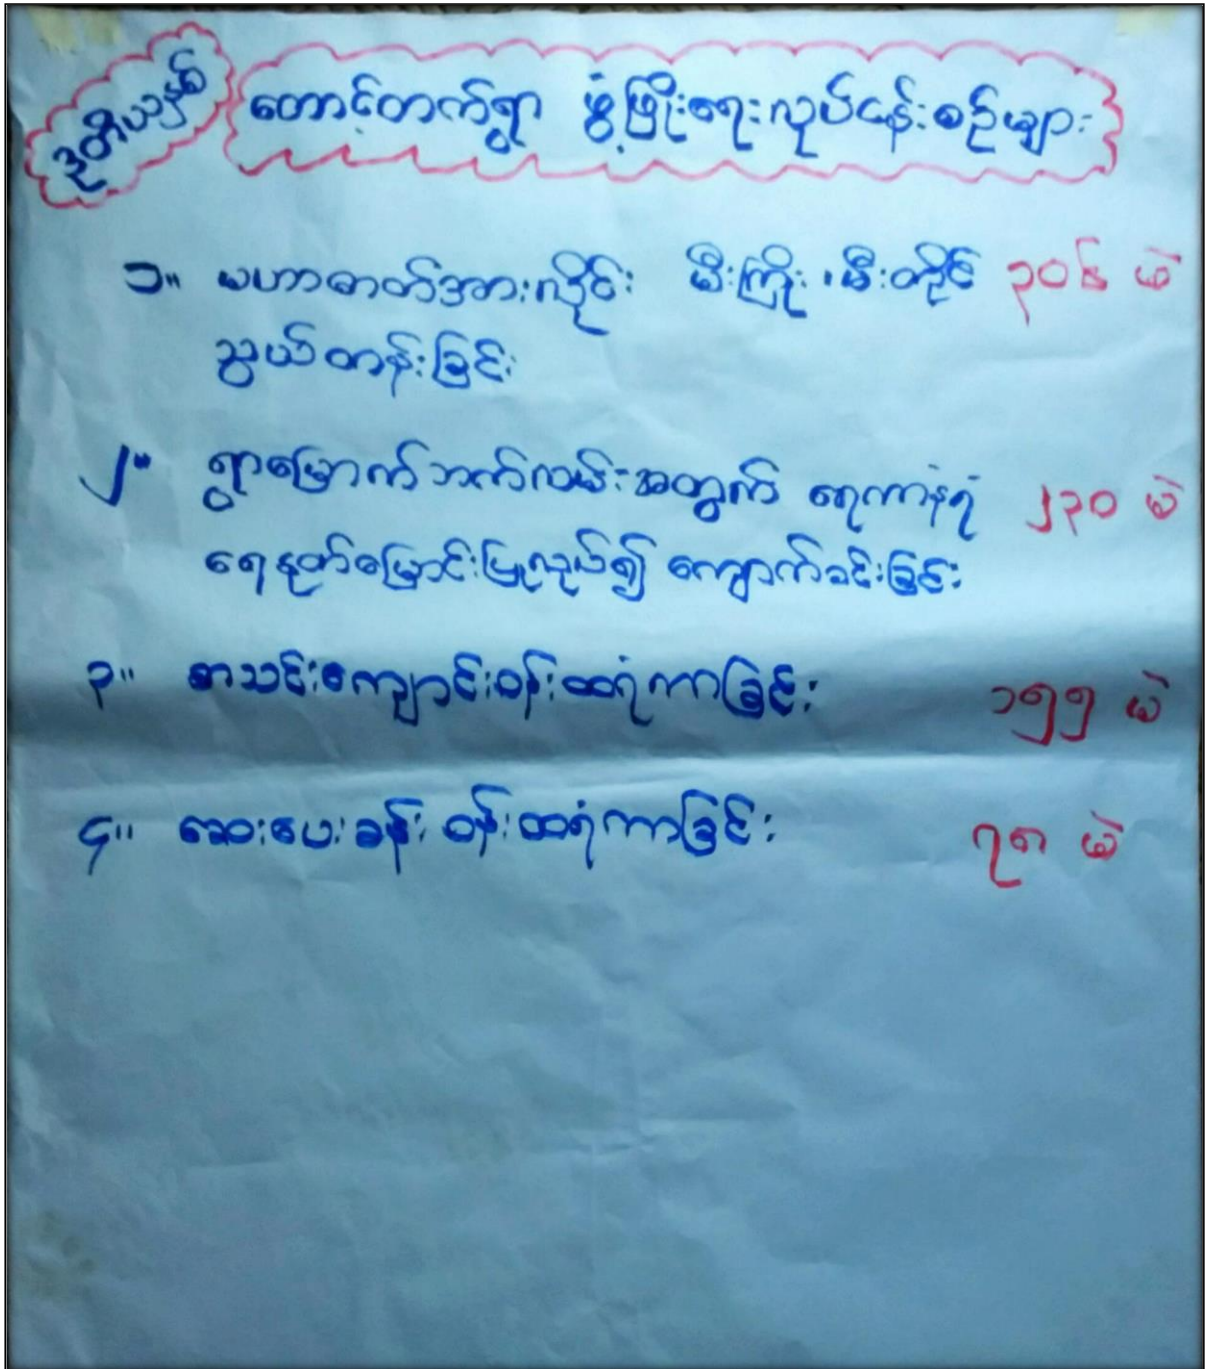 ဒုတိယနှစ်
တောင့်တက်ရွာ ဖွံ့ဖြိုးရေးလုပ်ငန်းစဉ်များ
၁။ မဟာဓာတ်အားလိုင်း မီးကြိုး၊မီးတိုင် ၃၀၆ မဲ
သွယ်တန်းခြင်း
၂။ ရွာမြောက်ဘက်လမ်းအတွက် ရေကာနံရံ ၂၃၀ မဲ
ရေနုတ်မြောင်းပြုလုပ်၍ ကျောက်ခင်းခြင်း
၃။ စာသင်ကျောင်းဝန်းထရံကာခြင်း ၁၅၅ မဲ
၄။ ဆေးပေးခန်း ဝန်းထရံကာခြင်း ၇၈ မဲ